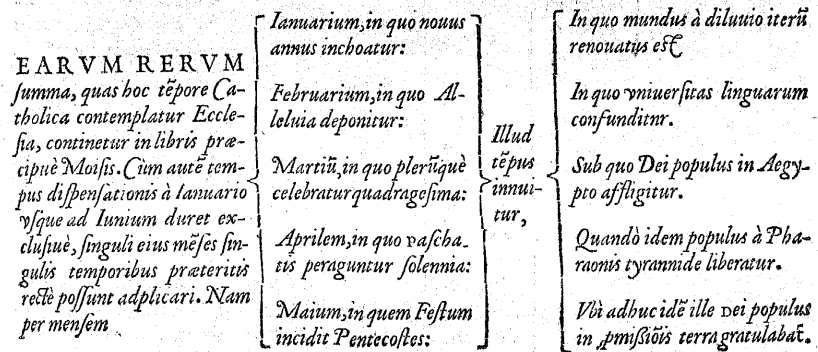 EARVM RERVM
ſumma, quas hoc tẽpore Ca-
tholica contemplatur Eccle-
ſia, continetur in libris præ-
cipuè Moiſis. Cùm autẽ tem-
pus diſpenſationis à Ianuario
vſque ad Iunium duret ex-
cluſiuè, ſinguli eius mẽſes ſin-
gulis temporibus præteritis
rectè poſſunt adplicari. Nam
per menſem
Ianuarium, in quo nouus
annus inchoatur:
Februarium, in quo Al-
leluia deponitur:
Martiũ, in quo plerũquè
celebratur quadrageſima:
Aprilem, in quo paſcha-
tis peraguntur ſolennia:
Maium, in quem Feſtum
incidit Pentecoſtes:
Illud
tẽpus
innui-
tur,
In quo mundus à diluuio iterũ
renouatus eſt
In quo vniuerſitas linguarum
confunditnr.
Sub quo Dei populus in Aegy-
pto affligitur.
Quandò idem populus à Pha-
raonis tyrannide liberatur.
Vbi adhuc idẽ ille Dei populus
in ꝓmiſſiõis terra gratulabat᷑.